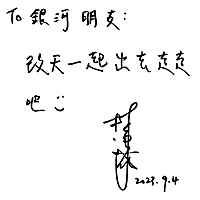 To 銀河 朋友:
改天一起出去走走
吧
2023.9.4